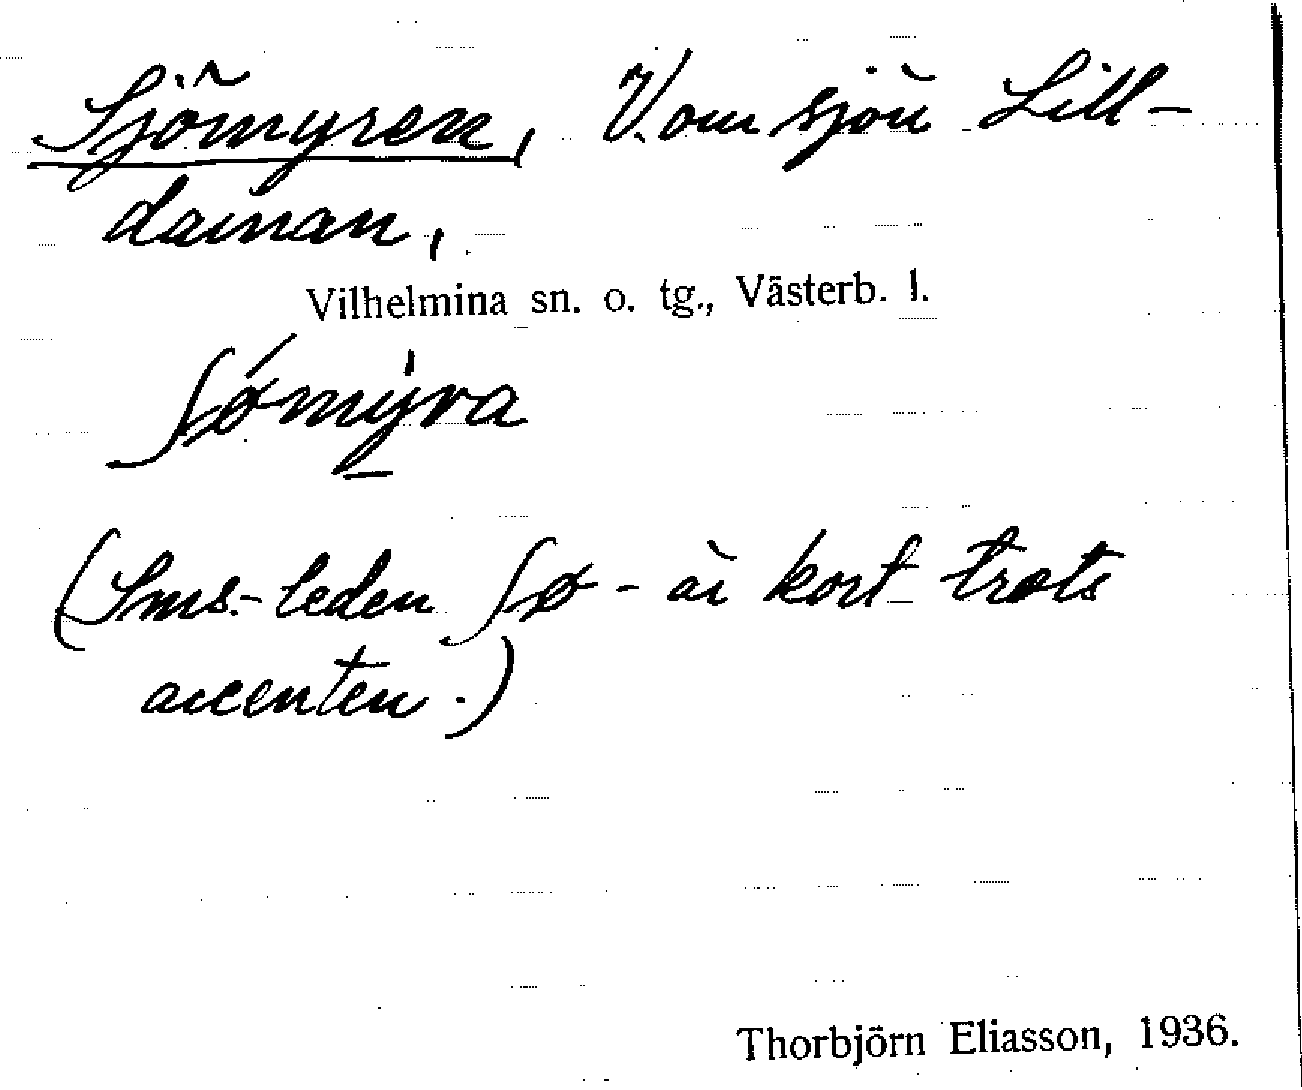 Sjömyren, V om sjön Lill-
damman,
Vilhelmina sn. o. tg., Västerb. l.
ʃø´mýra
(Sms.-leden ʃø- är kort trots
accenten.)
Thorbjörn Eliasson, 1936.